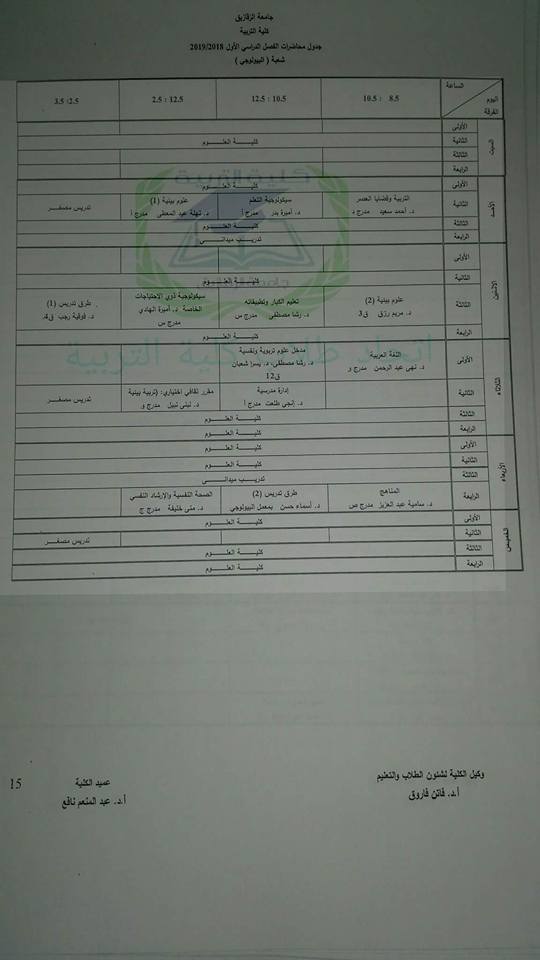 جامعة الزقازيق
كلية التربية
جدول محاضرات الفصل الدراسي الأول 2019/2018
شعبة ( البيولوجي )
الساعة
اليوم
الفرقة
8.5 : 10.5
10.5 : 12.5
12.5 : 2.5
2.5: 3.5
السبت
الأولى
الثانية
كليـــة العلـــوم
الثالثة
الرابعة
الأحد
الأولى
كليـــة العلـــوم
الثانية
التربية وقضايا العصر
د. أحمد سعيد مدرج د
سيكولوجية التعلم
د. أميرة بدر مدرج أ
علوم بيئية (1)
د. نهلة عبد المعطى مدرج أ
تدريس مصغـر
الثالثة
كليـــة العلـــوم
الرابعة
تدريب ميدانـــي
الاثنين
الأولى
الثانية
كليـــة العلـــوم
الثالثة
علوم بيئية (2)
د. مريم رزق ق3
تعليم الكبار وتطبيقاته
د. رشا مصطفى مدرج س
سيكولوجية ذوي الاحتياجات
الخاصة د. أميرة الهادي
مدرج س
طرق تدريس (1)
د. فوقية رجب
الرابعة
كليـــة العلـــوم
اتحاد طلاب كلية التربية
الثلاثاء
الأولى
اللغة العربية
د. نهى عبد الرحمن مدرج و
مدخل علوم تربوية ونفسية
د. رشا مصطفى، د. يسرا شعبان
ق12
الثانية
إدارة مدرسية
د. إنجي طلعت مدرج أ
مقرر ثقافي اختياري: (تربية بيئية
د. لبنى نبيل مدرج و
تدريس مصغـر
الثالثة
كليـــة العلـــوم
الرابعة
كليـــة العلـــوم
الأربعاء
الأولى
كليـــة العلـــوم
الثانية
كليـــة العلـــوم
الثالثة
تدريب ميدانـــي
الرابعة
المناهج
د. سامية عبد العزيز مدرج ص
طرق تدريس (2)
د. أسماء حسن بمعمل البيولوجي
الصحة النفسية والإرشاد النفسي
د. منى خليفة مدرج ج
الخميس
الأولى
كليـــة العلـــوم
الثانية
تدريس مصغـر
الثالثة
كليـــة العلـــوم
الرابعة
كليـــة العلـــوم
وكيل الكلية لشئون الطلاب والتعليم
أ.د. فاتن فاروق
عميد الكلية
أ.د. عبد المنعم نافع
15